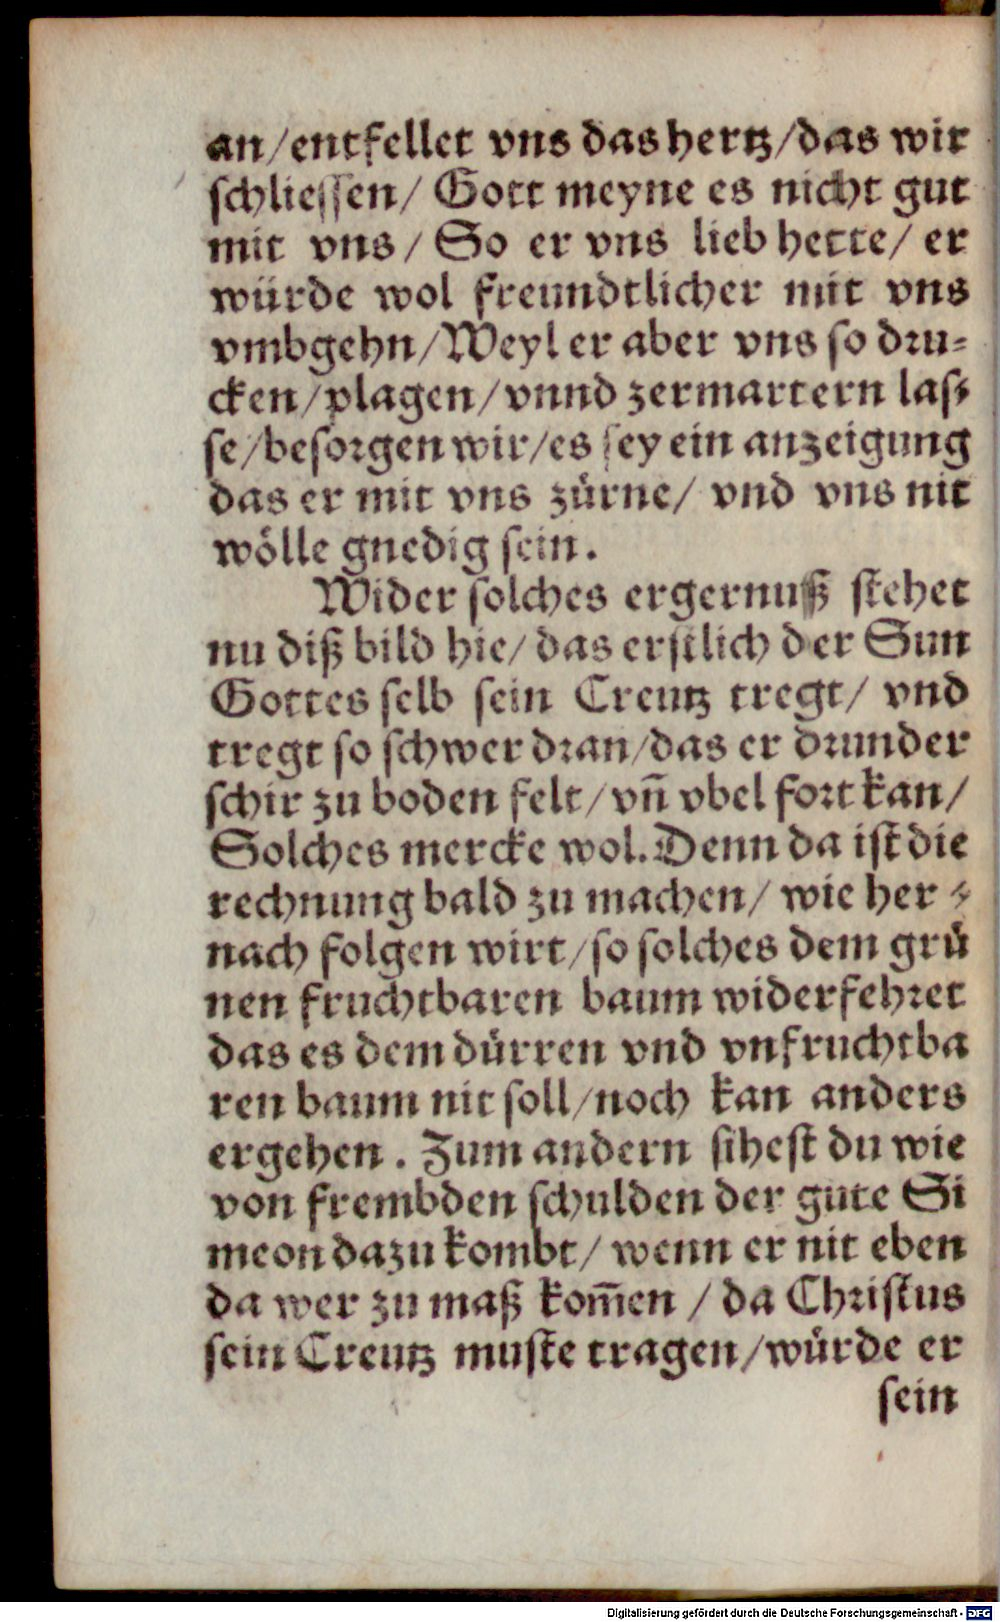 an/entfellet vns das hertz/das wir
schliessen/ Gott meyne es nicht gut
mit vns/ So er vns lieb hette/ er
würde wol freundtlicher mit vns
vmbgehn/Weyl er aber vns so dru-
cken/plagen/vnnd zermartern las-
se/besorgen wir/es sey ein anzeigung
das er mit vns zürne/ vnd vns nit
wölle gnedig sein.
Wider solches ergernuß stehet
nu diß bild hie/ das erstlich der Sun
Gottes selb sein Creutz tregt/ vnd
tregt so schwer dran/das er drunder
schir zu boden felt/ vñ vbel fort kan/
Solches mercke wol. Denn da ist die
rechnung bald zu machen/ wie her-
nach folgen wirt/so solches dem grü
nen fruchtbaren baum widerfehret
das es dem dürren vnd vnfruchtba
ren baum nit soll/noch kan anders
ergehen. Zum andern sihest du wie
von frembden schulden der gute Si
meon dazu kombt/ wenn er nit eben
da wer zu maß kom̃en / da Christus
sein Creutz muste tragen/würde er
sein
Digitalisierung gefördert durch die Deutsche Forschungsgemeinschaft - DFG